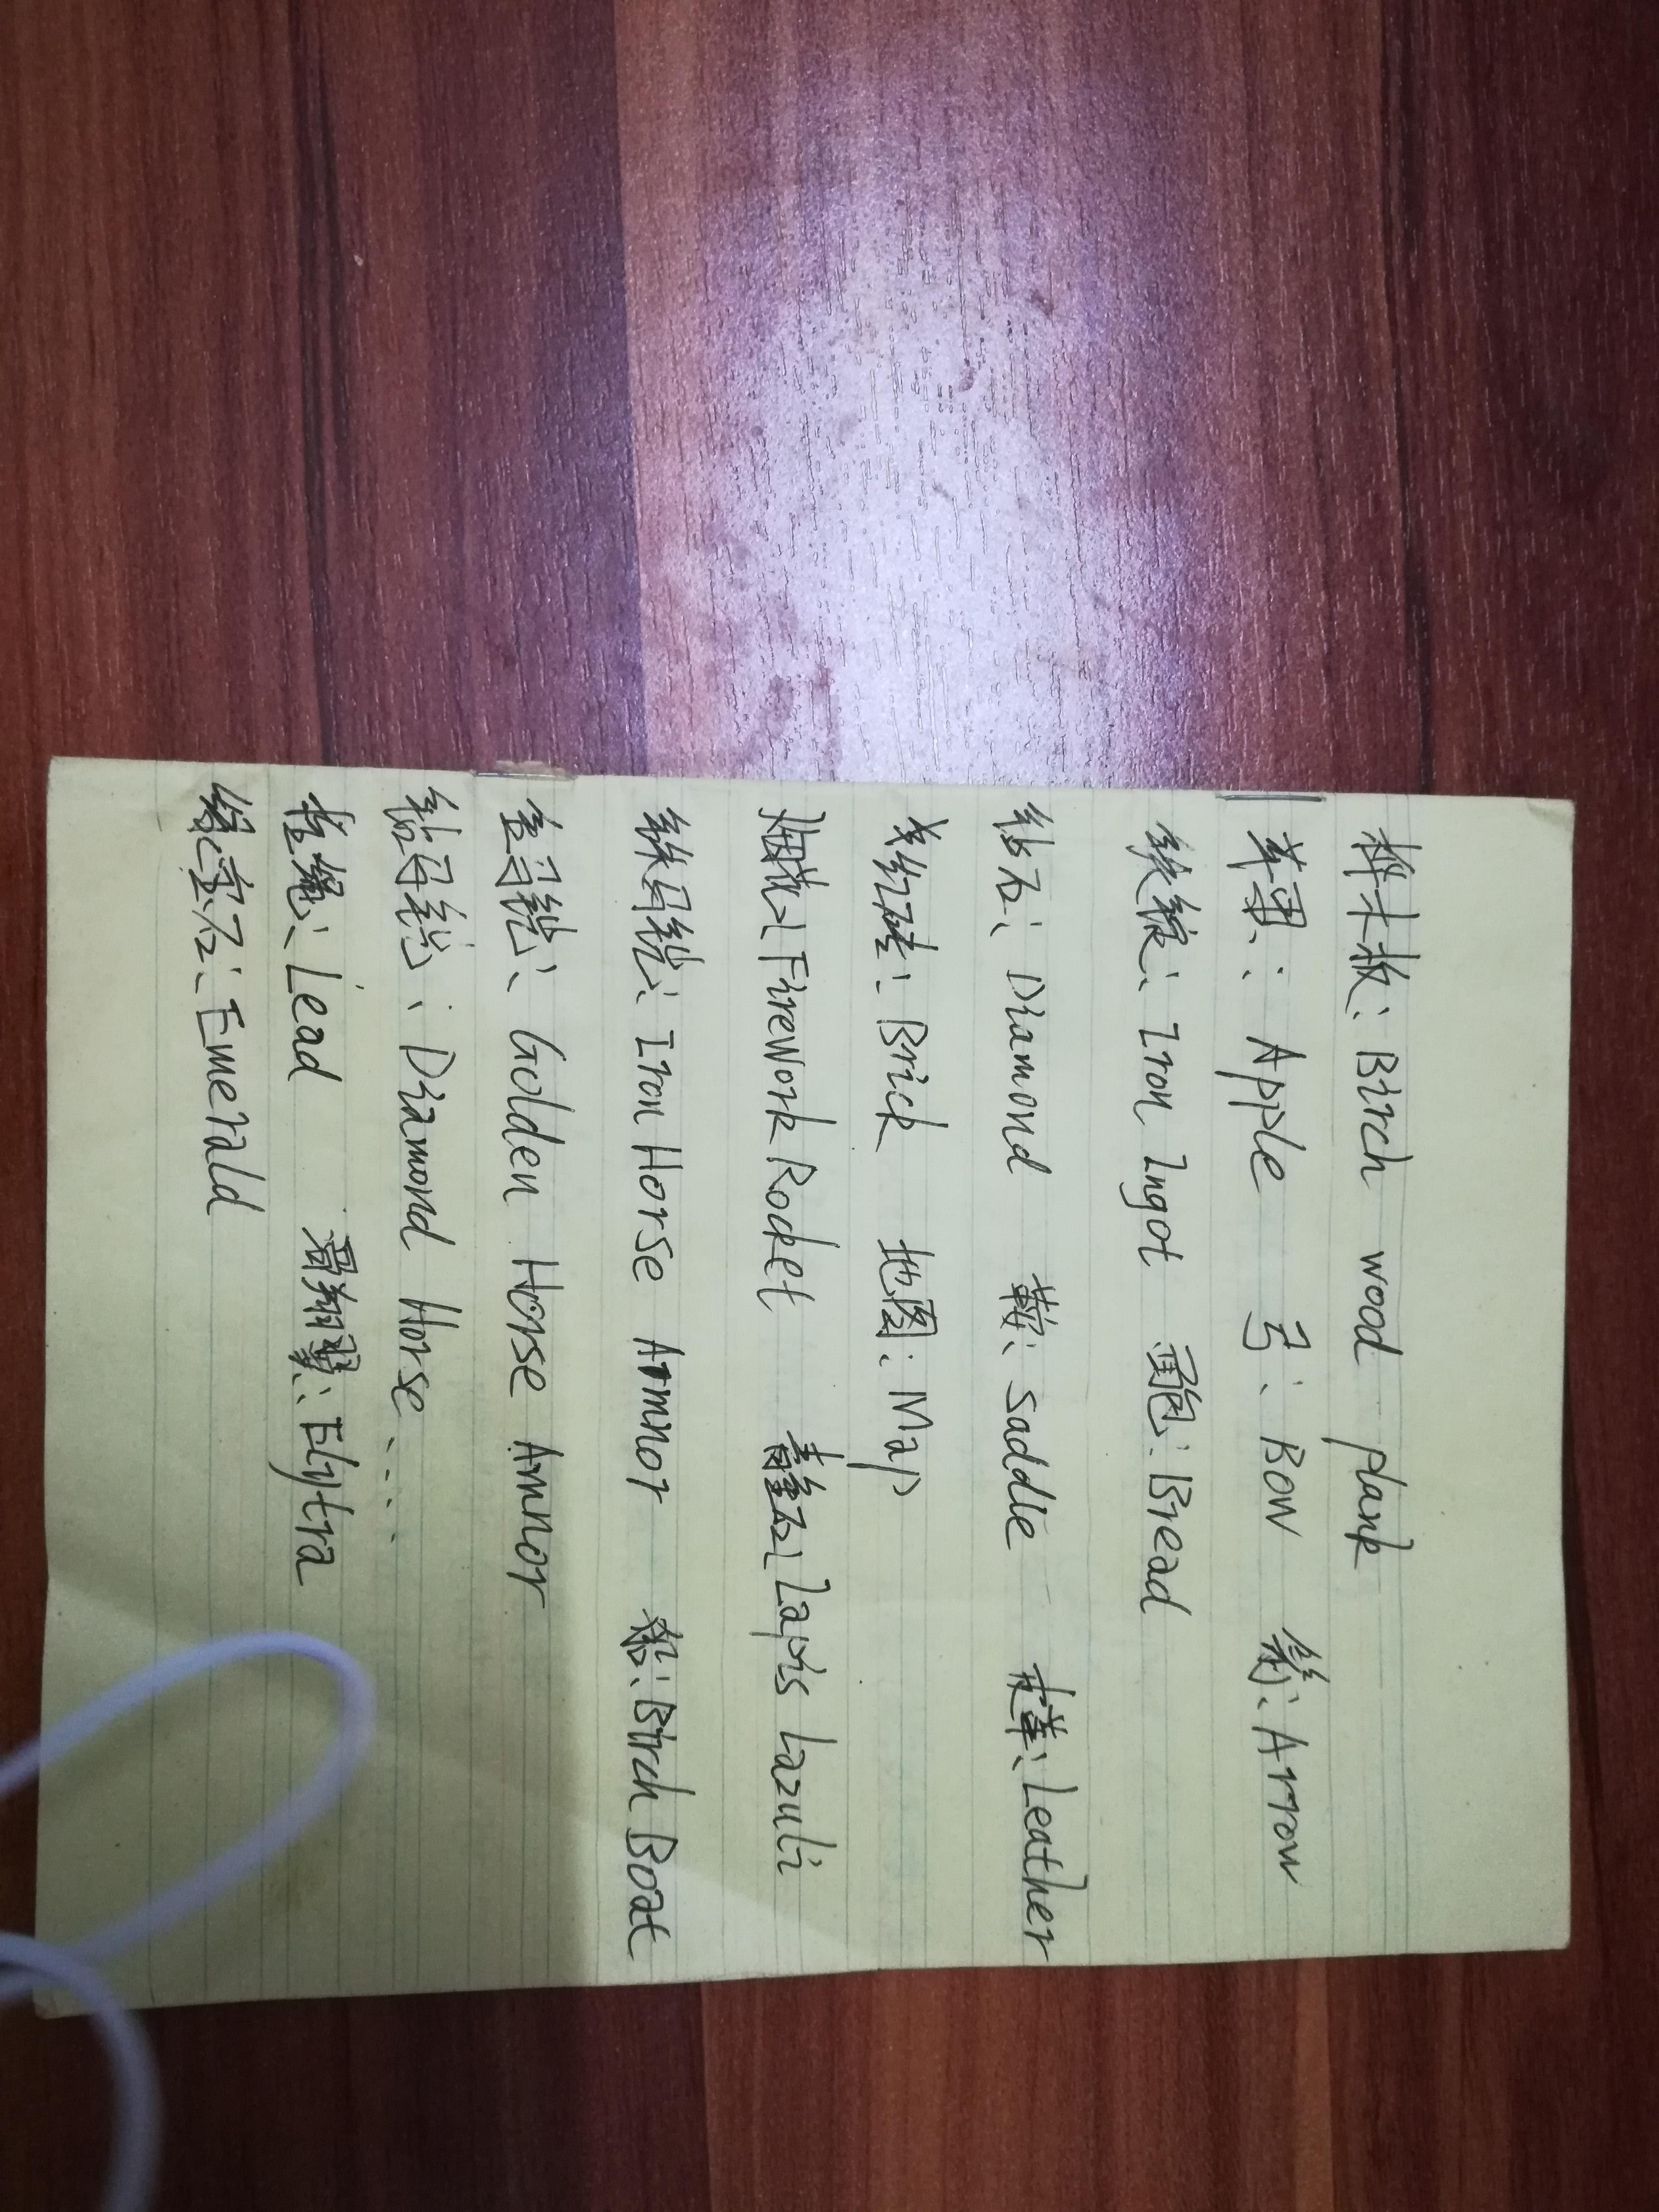 桦木板: Birch wood plank
苹果: Apple 弓: Bow 箭: Arrow
铁锭: Iron Ingot 面包: Bread
钻石: Diamond 鞍: Saddle 皮革: Leather
红砖: Brick 地图: Map
烟花: FireWork Rocket 青金石: Lapis Lazuli
铁马铠: Iron Horse Armnor 船: Birch Boat
金马铠: Golden Horse Armnor
钻马铠: Diamond Horse....
拴绳: Lead 鞘翅: Elytra
绿宝石: Emerald